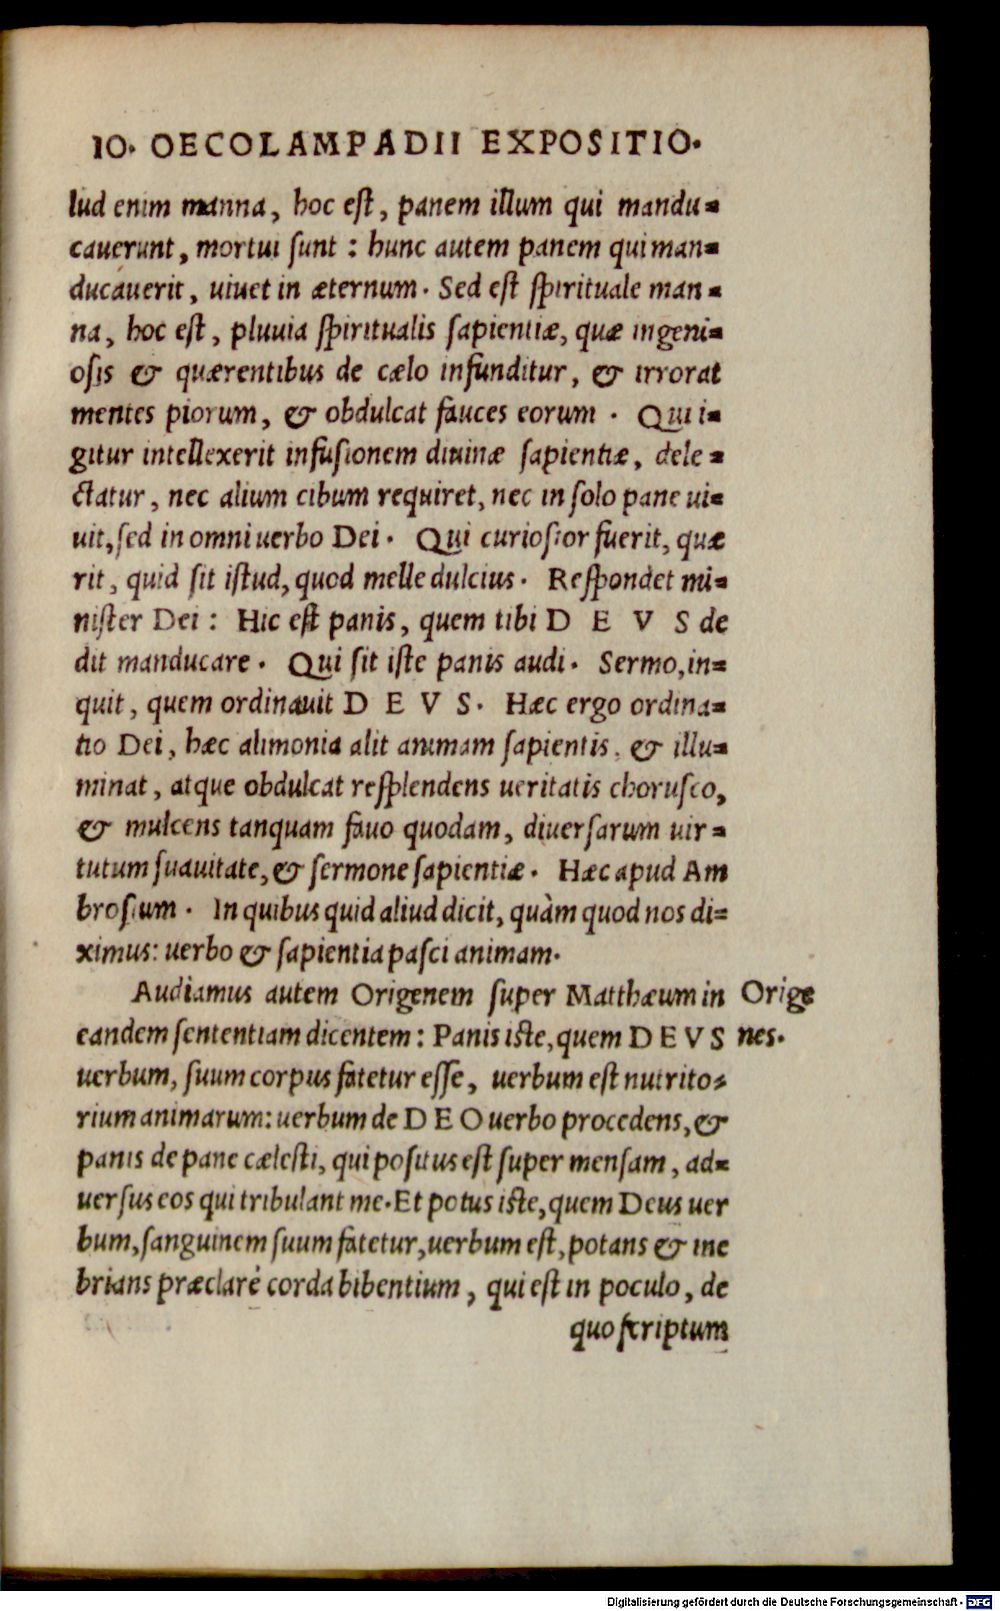 IO. OECOLAMPADII EXPOSITIO.
lud enim manna, hoc eſt, panem illum qui mandu=
cauerunt, mortui ſunt : hunc autem panem qui man=
ducauerit, uiuet in æternum. Sed eſt ſpirituale man=
na, hoc eſt, pluuia ſpiritualis ſapientiæ, quæ ingeni=
oſis & quærentibus de cælo infunditur, & irrorat
mentes piorum, & obdulcat fauces eorum . Qui i=
gitur intellexerit infuſionem diuinæ ſapientiæ, dele=
ctatur, nec alium cibum requiret, nec in ſolo pane ui=
uit, ſed in omni uerbo Dei. Qui curioſior fuerit, quæ
rit, quid ſit iſtud, quod melle dulcius. Reſpondet mi=
niſter Dei : Hic eſt panis, quem tibi D E V S de
dit manducare. Qui ſit iſte panis audi. Sermo, in=
quit, quem ordinauit D E V S. Hæc ergo ordina=
tio Dei, hæc alimonia alit animam ſapientis, & illu=
minat, atque obdulcat reſplendens ueritatis choruſco,
& mulcens tanquam fauo quodam, diuerſarum uir=
tutum ſuauitate, & ſermone ſapientiæ. Hæc apud Am
broſium . In quibus quid aliud dicit, quàm quod nos di=
ximus: uerbo & ſapientia paſci animam.
Audiamus autem Origenem ſuper Matthæum in Orige
eandem ſententiam dicentem : Panis iſte, quem D E V S nes.
uerbum, ſuum corpus fatetur eſſe, uerbum eſt nutrito=
rium animarum: uerbum de D E O uerbo procedens, &
panis de pane cæleſti, qui poſitus eſt ſuper menſam, ad=
uerſus eos qui tribulant me. Et potus iſte, quem Deus uer
bum, ſanguinem ſuum fatetur, uerbum eſt, potans & ine
brians præclarè corda bibentium, qui eſt in poculo, de
quo ſcriptum
Digitalisierung gefördert durch die Deutsche Forschungsgemeinschaft - DFG